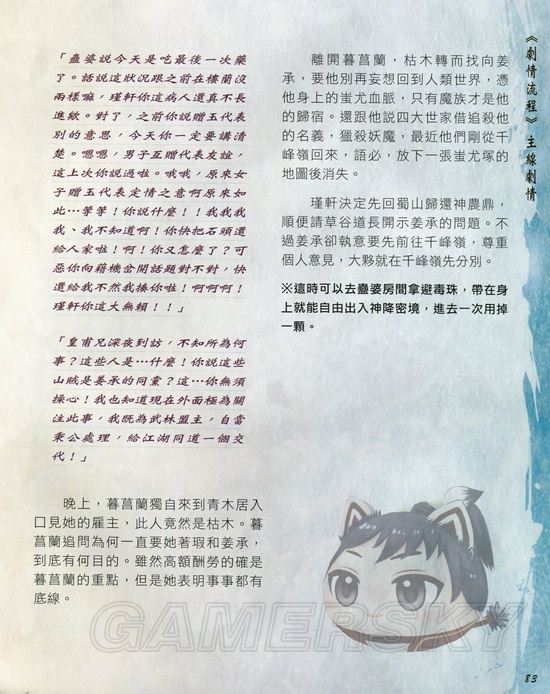 「蠱婆說今天是吃最後一次藥
了。話說這狀況跟之前在樓蘭沒
兩樣嘛，瑾軒你這病人還真不長
進欸。對了，之前你說贈玉代表
別的意思，今天你一定要講清
楚。嗯嗯，男子互贈代表友誼，
這上次你說過啦。哦哦，原來女
子贈玉代表定情之意啊原來如
此…等等！你說什麼！！我我我
我、我不知道啊！你快把石頭還
給人家啦！啊！你又怎麼了？可
惡你向藉機岔開話題對不對，快
還給我不然我揍你啦！啊啊啊！
瑾軒你這大無賴！！」
「皇甫兄深夜到訪，不知所為何
事？這些人是…什麼！你說這些
山賊是姜承的同黨？這…你無須
操心！我也知道現在外面極為關
注此事，我既為武林盟主，自當
秉公處理，給江湖同道一個交
代！」
晚上，暮菖蘭獨自來到青木居入
口見她的雇主，此人竟然是枯木。暮
菖蘭追問為何一直要她著瑕和姜承，
到底有何目的。雖然高額酬勞的確是
暮菖蘭的重點，但是她表明事事都有
底線。
離開暮菖蘭，枯木轉而找向姜
承，要他別再妄想回到人類世界，憑
他身上的蚩尤血脈，只有魔族才是他
的歸宿。還跟他說四大世家借追殺他
的名義，獵殺妖魔，最近他們剛從千
峰嶺回來，語必，放下一張蚩尤塚的
地圖後消失。
瑾軒決定先回蜀山歸還神農鼎，
順便請草谷道長開示姜承的問題。不
過姜承卻執意要先前往千峰嶺，尊重
個人意見，大夥就在千峰嶺先分別。
※這時可以去蠱婆房間拿避毒珠，帶在身
上就能自由出入神降密境，進去一次用掉
一顆。
《劇情流程》主線劇情
GAMERSKY
83